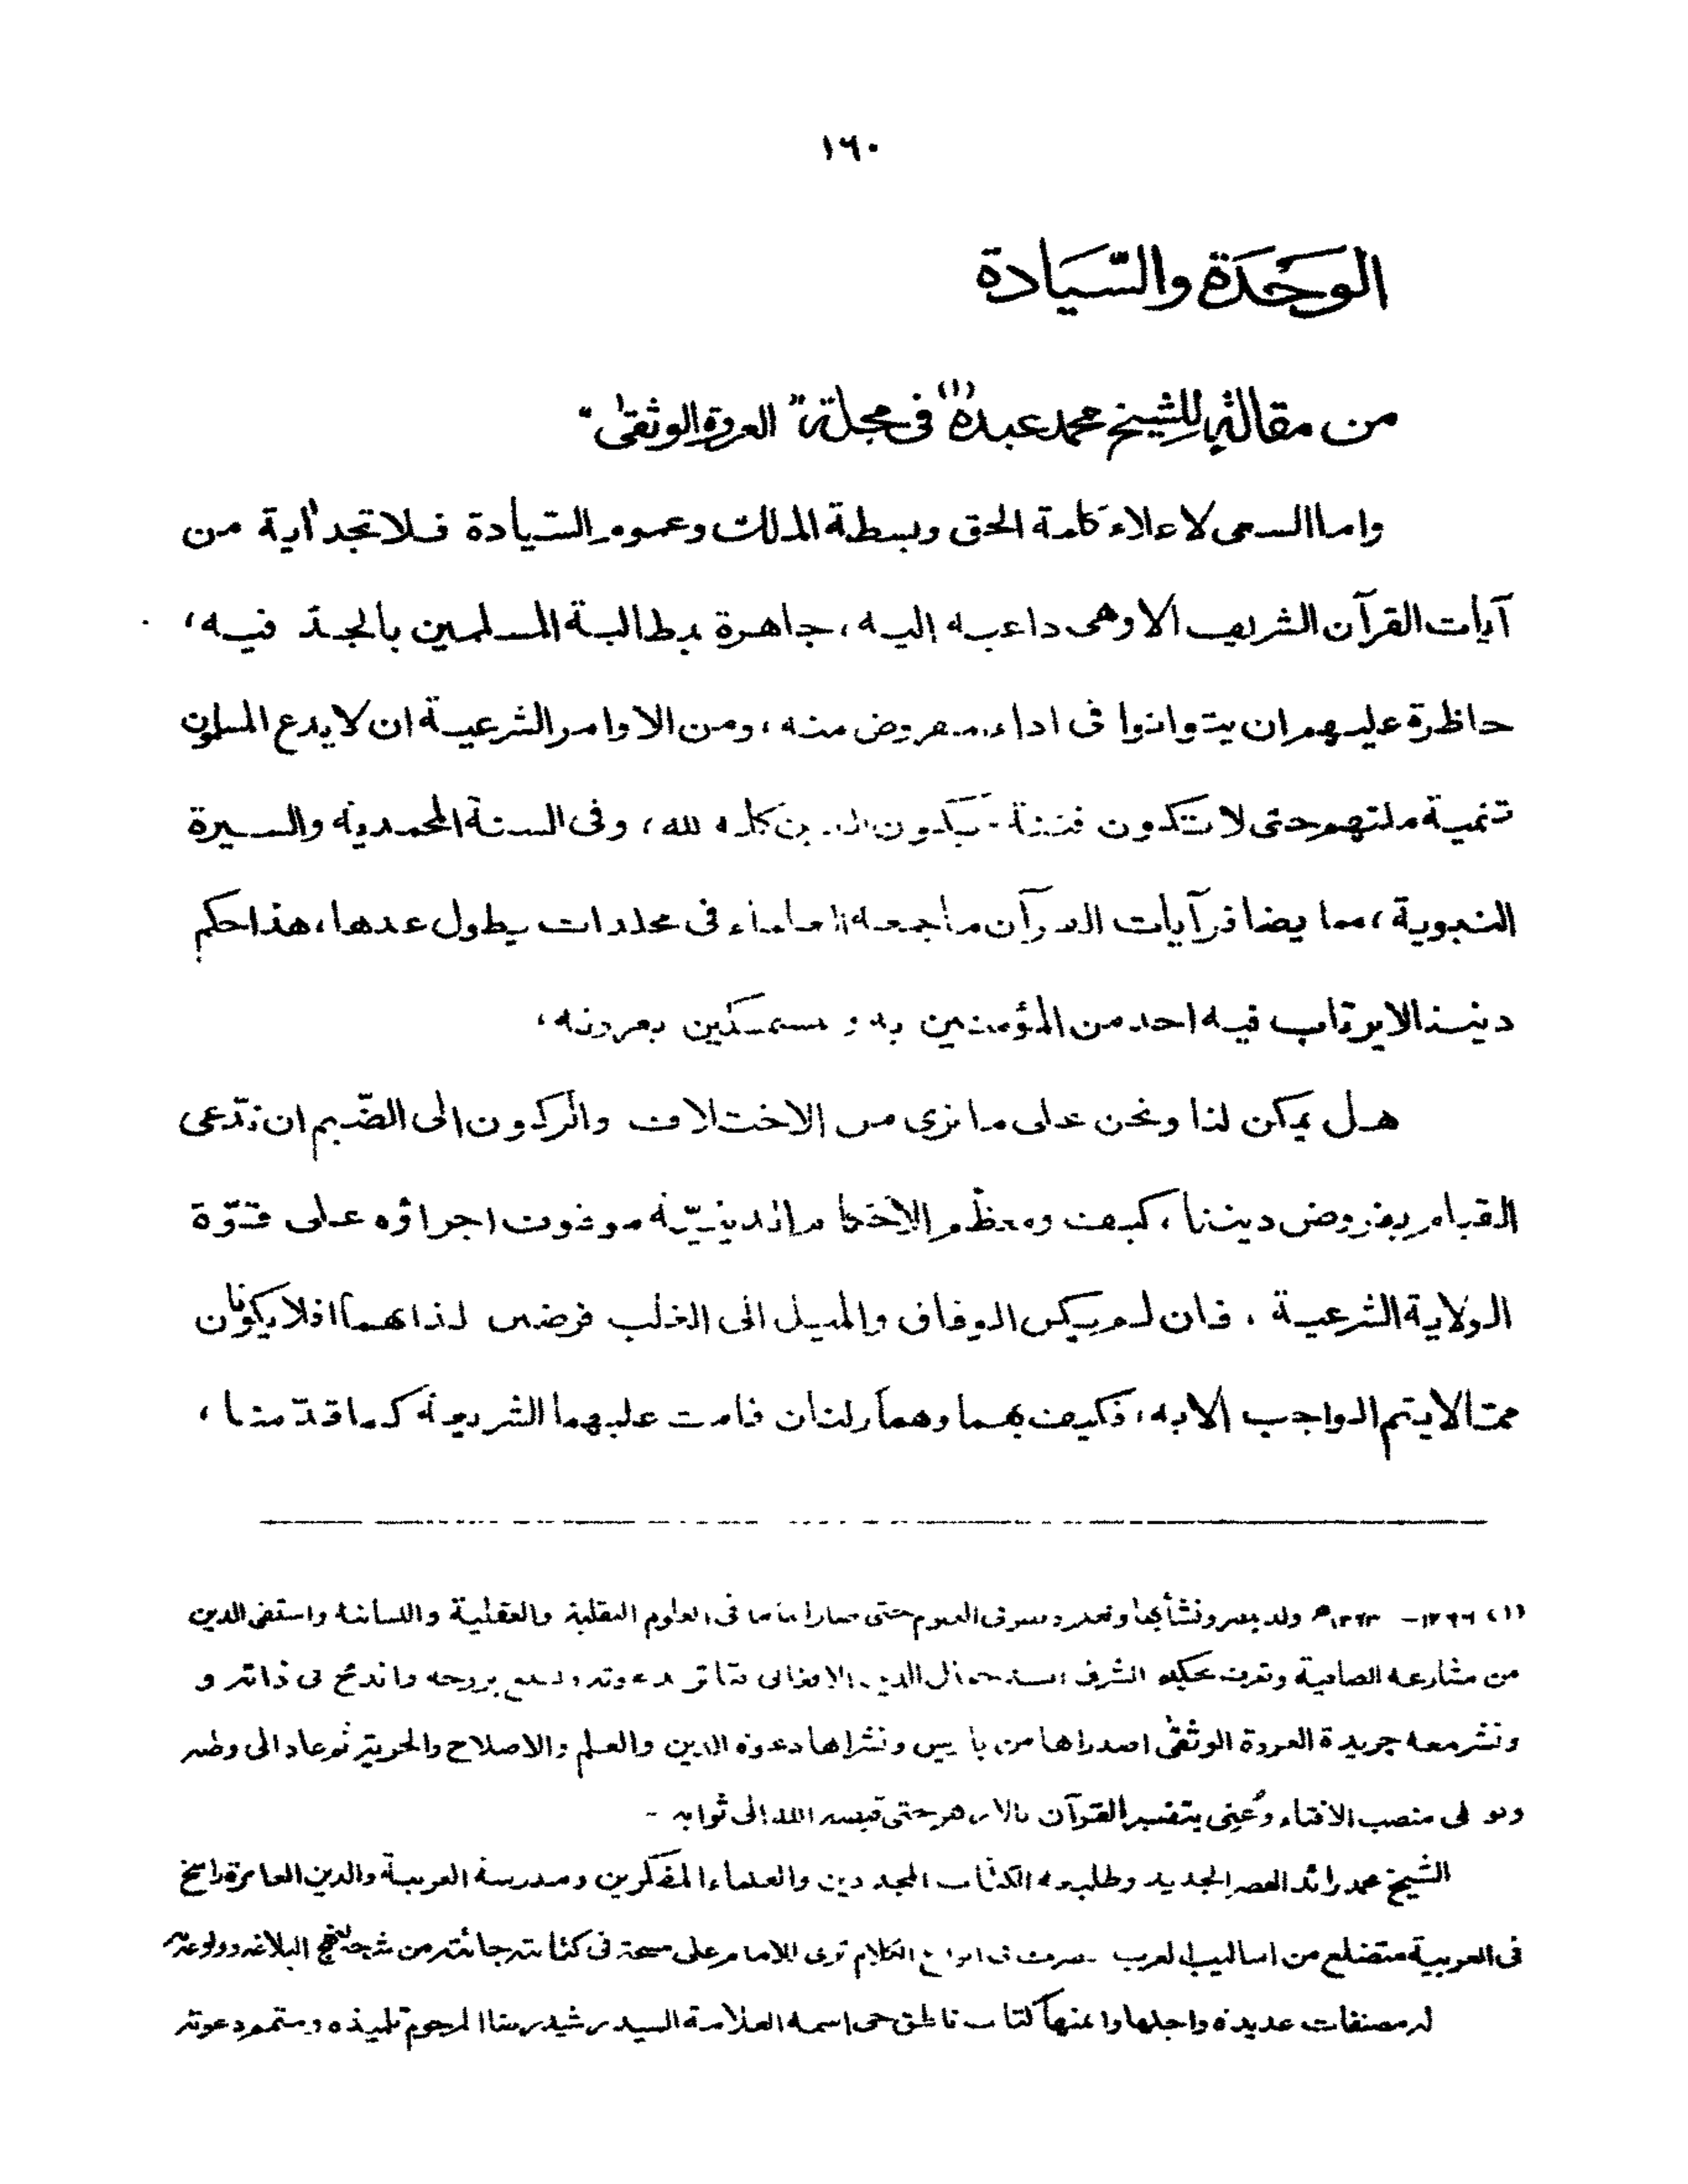 ١٦٠
الوَحْدَة والسّيَادة
من مقالة للشيخ محمد عبده (١) في مجلة "العروة الوثقى"
واما السعى لاعلاء كلمة الحق وبسطة الملك وعموم السّيادة فلا تجد آية من
آيات القرآن الشريف الا وهى داعيه اليه، جاهرة بمطالبة المسلمين بالجدّ فيه،
حاظرة عليهم ان يتوانوا فى اداء مفروض منه، ومن الاوامر الشرعية ان لا يدع المسلمون
تنمية ملتهم حتى لا تكون فتنة ويكون الدين كله لله، وفى السنة المحمدية والسيرة
النبوية، مما يضافر آيات القرآن ما جمعه العلماء فى مجلدات يطول عدها، هذا حكم
ديننا لا يرتاب فيه احد من المؤمنين به و مستمسكين بعروته،
هل يمكن لنا ونحن على ما نرى من الاختلاف والركون الى الضّيم ان ندّعى
القيام بفروض ديننا، كيف ومعظم الاحكام الدينيّة موقوف اجراؤه على قوّة
الولاية الشرعية، فان لم يكن الوفاق والميل الى الغلب فرضين لذاتهما افلا يكونان
ممّا لا يتم الواجب الا به، فكيف بهما وهما ركنان قامت عليهما الشريعة كما قدّمنا،
(١) ١٢٦٦ - ١٣٢٣ھ ولد بمصر ونشأ بها العلوم حتى صار اماما فى العلوم النقلية والعقلية واللسانية واستقى الدين
من مشارعه الصافية وتعرف بحكيم الشرف السيد جمال الدين الافغانى فتاثر بدعوته بروحه واندمج فى ذاته و
ونشر معه جريدة العروة الوثقى اصدراها من باريس ونشرا ها دعوة الدين والعلم والاصلاح والحرية ثم عاد الى وطنه
وولى منصب الافتاء وعُنِى بتفسير القرآن بالازهر حتى قبضه الله الى ثوابه -
الشيخ محمد رائد العصر الجديد الكتاب المجددين والعلماء المفكرين ومدرسة العربية والدين العامرة راسخ
فى العربية متضلع من اساليب العرب الكلام ترى للامام على مسحة فى كتابته جائته من شرحه لنهج البلاغه وولوعه به
له مصنفات عديدة واجلها كتاب العلامة السيد رشيد رضا المرحوم تلميذه ومتمم دعوته